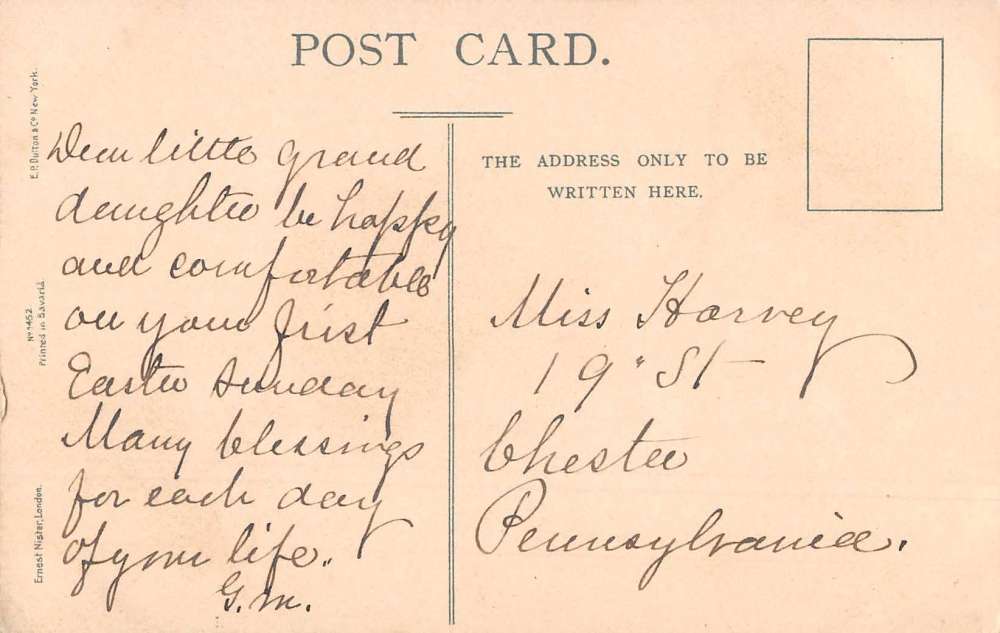 POST CARD.
E.P. Dutton & Co New York.
No 1452
Printed in Bavaria.
Ernest Nister, London.
Dear little grand
daughter be happy
and comfortable
on your first
Easter Sunday
Many blessings
for each day
of your life.
G.M.
THE ADDRESS ONLY TO BE
WRITTEN HERE.
Miss Harvey
19" St
Chester
Pennsylvania.